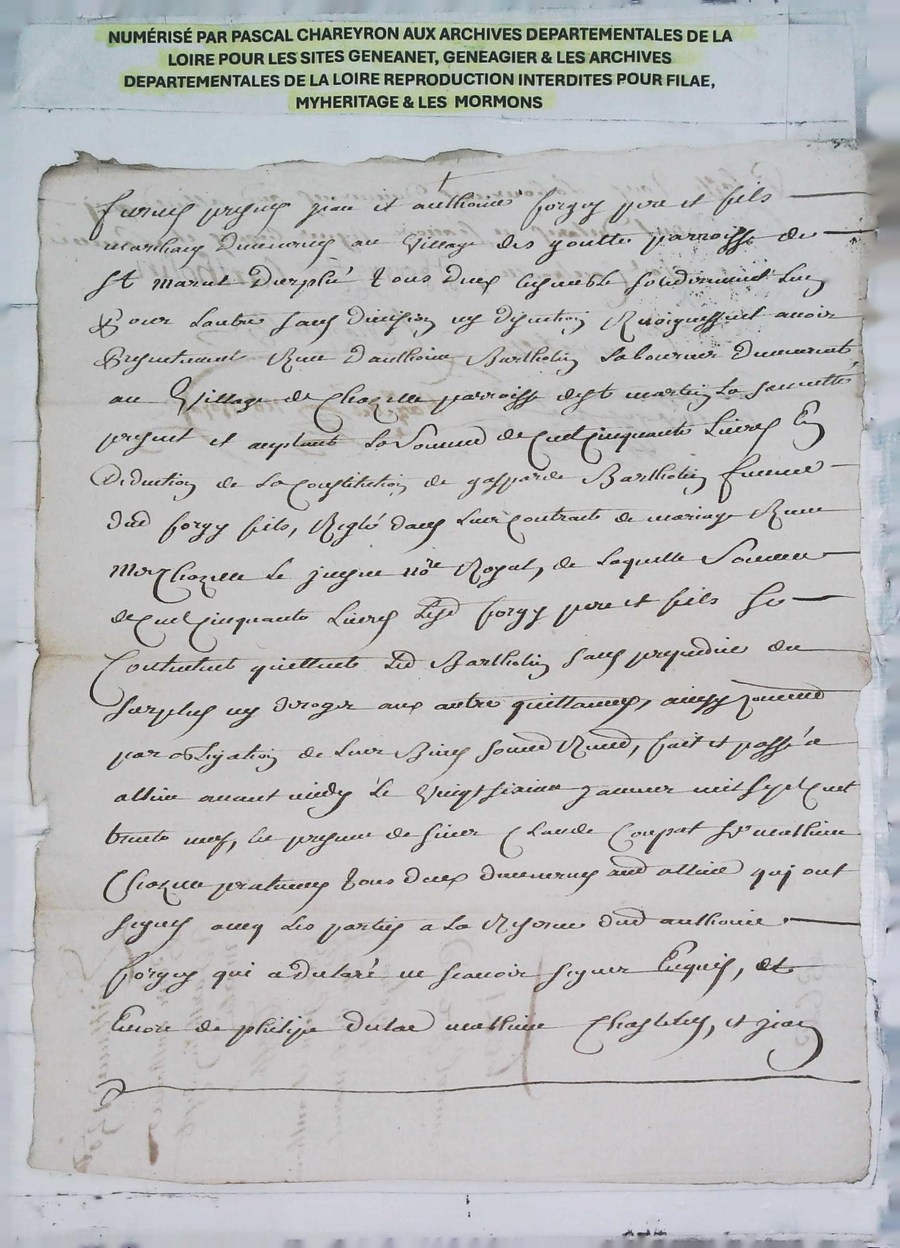 NUMÉRISÉ PAR PASCAL CHAREYRON AUX ARCHIVES DEPARTEMENTALES DE LA
LOIRE POUR LES SITES GENEANET, GENEAGIER & LES ARCHIVES
DEPARTEMENTALES DE LA LOIRE REPRODUCTION INTERDITES POUR FILAE,
MYHERITAGE & LES MORMONS
furent presens jean et anthoine forgey pere et fils
marchans demeurens au village des gouttes parroisse de
st marcel Durphé tous deux lun
Pour lautre sans division ny discution avoir
presentement Receu danthoine Barthollin laboureur demeurant
au Village de Chazelle parroisse de st martin la sauveté
present et aceptant la Somme de Cent Cinquante Livres En
Deduction de la Constitution de gasparde Barthollin femme
dud forgey fils, Reglé dans leur Contrait de mariage Receu
me Chazelle le jeusne nore Royal, de laquelle Somme
de Cent Cinquante Livres Lesd forgey pere et fils Se
Contentent quittent Led Barthollin sans prejudice du
Surplus ny deroger aux autre quittances, ainsy
par obligation de leur Biens fait et passé a
allieu avant midy le Vingt janvier mil sept Cent
trente neuf, en presence de sieur Claude Coupat sr mathieu
Chazelle praticiens tous deux demeurens aud allieu qui ont
signés avec les parties a la Reserve dud anthoine
forgey qui a declaré ne scavoir signer Enquis, et
Encore de philipe mathieu Chastelus, et jean